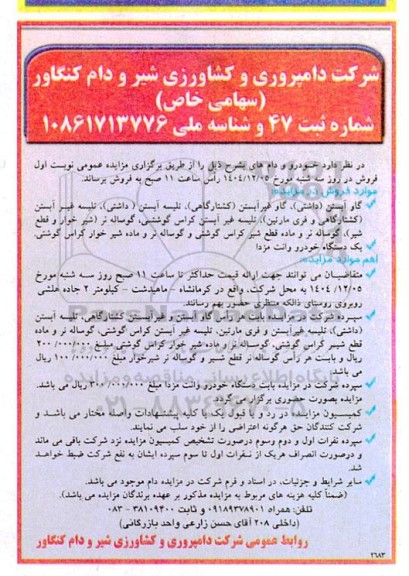 شرکت دامپروری و کشاورزی شیر و دام کنگاور
(سهامی خاص)
شماره ثبت ۴۷ و شناسه ملی ۱۰۸۶۱۷۱۳۷۷۶
در نظر دارد خودرو و دام های بشرح ذیل را از طریق برگزاری مزایده عمومی نوبت اول
فروش در روز سه شنبه مورخ ۱۴۰۴/۱۲/۰۵ رأس ساعت ۱۱ صبح به فروش برساند.
موارد فروش در مزایده:
گاو آبستن (داشتی)، گاو غیرآبستن (کشتارگاهی)، تلیسه آبستن (داشتی)، تلیسه غیر آبستن
(کشتارگاهی و فری مارتین)، تلیسه غیر آبستن کراس گوشتی، گوساله نر (شیر خوار و قطع
شیر)، گوساله نر و ماده قطع شیر کراس گوشتی و گوساله نر و ماده شیر خوار کراس گوشتی.
یک دستگاه خودرو وانت مزدا
اهم موارد مزایده:
متقاضیان می توانند جهت ارائه قیمت حداکثر تا ساعت ۱۱ صبح روز سه شنبه مورخ
۱۴۰۴/۱۲/۰۵ به محل شرکت، واقع در کرمانشاه – ماهیدشت – کیلومتر ۲ جاده هلشی
روبروی روستای ذالکه منتظری حضور بهم رسانند.
سپرده شرکت در مزایده بابت هر رأس گاو آبستن و غیرآبستن کشتارگاهی، تلیسه آبستن
(داشتی)، تلیسه غیرآبستن و فری مارتین، تلیسه غیر آبستن کراس گوشتی، گوساله نر و ماده
قطع شیر کراس گوشتی، گوساله نر و ماده شیر خوار کراس گوشتی مبلغ ۲۰۰/۰۰۰/۰۰۰
ریال و بابت هر رأس گوساله نر قطع شیر و گوساله نر شیرخوار مبلغ ۱۰۰/۰۰۰/۰۰۰ ریال
می باشد.
سپرده شرکت در مزایده بابت دستگاه خودرو وانت مزدا مبلغ ۳۰۰/۰۰۰/۰۰۰ ریال می باشد.
مزایده بصورت حضوری برگزار می گردد.
کمیسیون مزایده در رد و یا قبول یک یا کلیه پیشنهادات واصله مختار می باشد و
شرکت کنندگان حق هرگونه اعتراضی را از خود سلب می نمایند.
سپرده نفرات اول و دوم وسوم درصورت تشخیص کمیسیون مزایده نزد شرکت باقی می ماند
و درصورت انصراف هریک از نفرات اول تا سوم سپرده ایشان به نفع شرکت ضبط خواهد
شد.
سایر شرایط و جزئیات، در اسناد و فرم شرکت در مزایده دام موجود می باشد.
(ضمناً کلیه هزینه های مربوط به مزایده مذکور بر عهده برندگان مزایده می باشد).
تلفن: همراه ۰۹۱۸۹۳۷۸۹۰۱ و ثابت ۳۸۱۰۹۴۰۰ - ۰۸۳
(داخلی ۲۰۸ آقای حسن زارعی واحد بازرگانی)
روابط عمومی شرکت دامپروری و کشاورزی شیر و دام کنگاور
۲۶۸۳